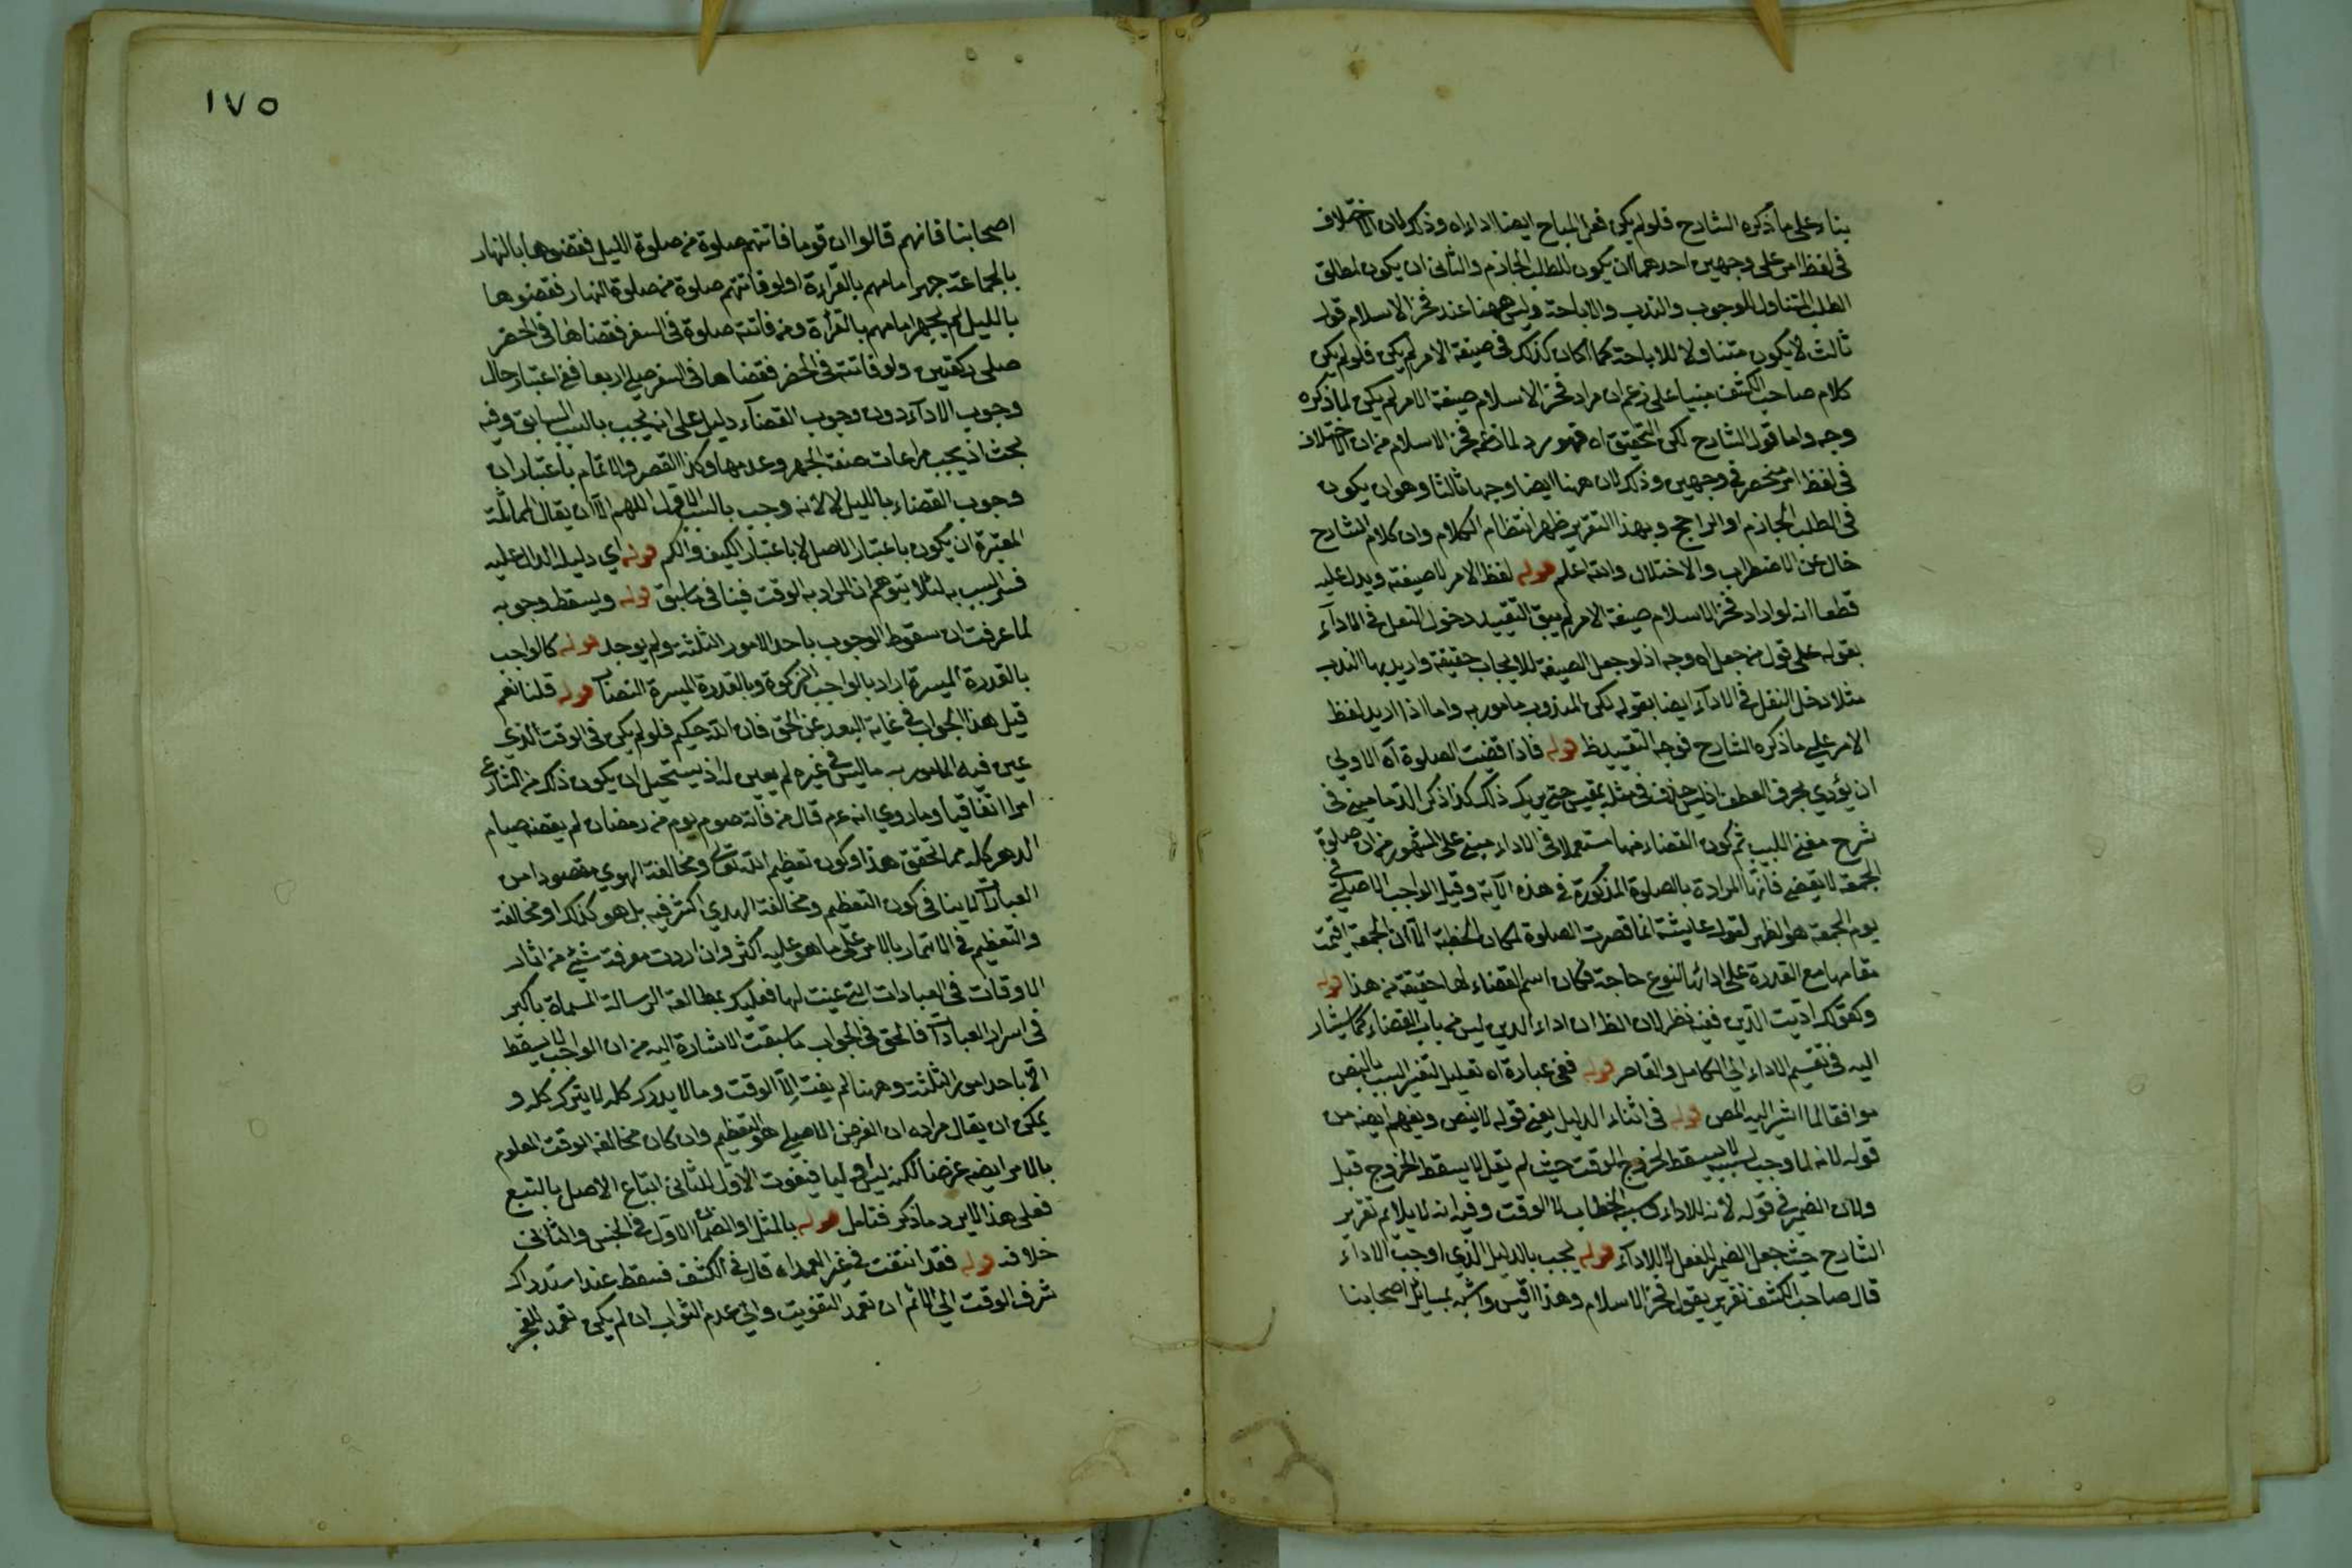 بناء على ما ذكره الشارح فلو لم يكن فعل المباح ايضا اداء اه وذلك لان الاختلاف
في لفظ امر على وجهين احدهما ان يكون للطلب الجازم والثاني ان يكون لمطلق
الطلب المتناول للوجوب والندب والاباحة وليس ههنا عند فخر الاسلام قول
ثالث لا يكون متناولا للاباحة كما كان كذلك في صيغة الامر لم يكن فلو لم يكن
كلام صاحب الكشف مبنيا على زعم ان مراد فخر الاسلام صيغة الامر لم يكن لما ذكره
وجه واما قول الشارح لكن التحقيق اه فهو رد لما زعم فخر الاسلام من ان الاختلاف
في لفظ امر منحصر في وجهين وذلك لان ههنا ايضا وجها ثالثا وهو ان يكون
في الطلب الجازم او الراجح وبهذا التقرير ظهر انتظام الكلام وان كلام الشارح
خال عن الاضطراب والاختلال والله اعلم قوله لفظ الامر لا صيغته ويدل عليه
قطعا انه لو اراد فخر الاسلام صيغة الامر لم يبق لتقييد دخول النفل في الاداء
بقوله على قول من جعل اه وجه اذ لو جعل الصيغة للايجاب حقيقة واريد بها الندب
مثلا دخل النفل في الاداء ايضا بقوله لكن المندوب مامور به واما اذا اريد لفظ
الامر على ما ذكره الشارح فوجه التقييد ظ قوله فاذا قضيت الصلوة اه الاولى
ان يؤدي بحرف العطف اذ ليس حذفه في مثله بمقيس حتى يرتكب ذلك كذا ذكر الدماميني في
شرح مغني اللبيب ثم كون القضاء فيها مستعملا في الاداء مبني على المشهور من ان صلوة
الجمعة لا يقضى فانها المرادة بالصلوة المذكورة في هذه الآية وقيل الواجب الاصلي في
يوم الجمعة هو الظهر لقول عايشة انما قصرت الصلوة لمكان الخطبة الا ان الجمعة اقيمت
مقامها مع القدرة على ادائها لنوع حاجة فكان اسم القضاء لها حقيقة من هذا قوله
وكقولك اديت الدين ففيه نظر لان الظ ان اداء الدين ليس من باب القضاء كما يشار
اليه في تقسيم الاداء الى الكامل والقاصر قوله ففي عبارة اه تعليل لتغير السبب بالنص
موافقا لما اشير اليه المص قوله في اثناء الدليل يعني قوله لا بنص ويفهم ايضه من
قوله لانه لما وجب لسببه لا يسقط لخروج الوقت حيث لم يقل لا يسقط الخروج قبل
ولان الضمير في قوله لانه للاداء وسببه الخطاب لا الوقت وفيه انه لا يلائم تقرير
الشارح حيث جعل الضمير للفعل لا للاداء قوله يجب بالدليل الذي اوجب الاداء
قال صاحب الكشف تقرير يقول فخر الاسلام وهذا اقيس واشبه بمسائل اصحابنا
١٧٥
اصحابنا فانهم قالوا ان قوما فاتتهم صلوة من صلوة الليل فقضوها بالنهار
بالجماعة جهر امامهم بالقراءة ولو فاتتهم صلوة من صلوة النهار فقضوها
بالليل لم يجهر امامهم بالقراءة ومن فاتته صلوة في السفر فقضاها في الحضر
صلى ركعتين ولو فاتته في الحضر فقضاها في السفر صلى اربعا ففي اعتبار حال
وجوب الاداء دون وجوب القضاء دليل على انه يجب بالسبب السابق وفيه
بحث اذ يجب مراعات صفة الجهر وعدمها وكذا القصر والاتمام باعتبار ان
وجوب القضاء بالليل لا لانه وجب بالسبب الاول اللهم الا ان يقال المماثلة
المعتبرة ان يكون باعتبار الاصل لا باعتبار الكيف والكم قوله اي دليله الدال عليه
فسر السبب به لئلا يتوهم ان المراد به الوقت فينافي ما سبق قوله ويسقط وجوبه
لما عرفت ان سقوط الوجوب باحد الامور الثلثة ولم يوجد قوله كالواجب
بالقدرة الميسرة اراد بالواجب الزكوة وبالقدرة الميسرة النصاب قوله قلنا نعم
قيل هذا الجواب في غاية البعد عن الحق فان الله حكيم فلو لم يكن في الوقت الذي
عين فيه المامور به ما ليس في غيره لم يعين له اذ يستحيل ان يكون ذلك من الشارع
امرا اتفاقيا وما روي انه عم قال من فاته صوم يوم من رمضان لم يقضه صيام
الدهر كله مما تحقق هذا وكون تعظيم الله تعالى ومخالفة الهوى مقصودا من
العبادات لا ينافي كون التعظيم ومخالفة الهوى اكثر فيه بل هو كذلك ومخالفة
والتعظيم في الائتمار بالامر على ما هو عليه اكثر وان اردت معرفة شيء من اثار
الاوقات في العبادات التي عينت لها فعليك بمطالعة الرسالة المسماة باكبر
في اسرار العبادات فالحق في الجواب ما سبقت الاشارة اليه من ان الواجب لا يسقط
الا باحد امور الثلثة وههنا لم يفت الا الوقت وما لا يدرك كله لا يترك كله و
يمكن ان يقال مراده ان الغرض الاصلي هو التعظيم وان كان مخالفة الوقت المعلوم
بالامر ايضه غرضا لكنه ليس اوليا فيفوت الاول الثاني اتباع الاصل بالتبع
فعلى هذا لا يرد ما ذكر فتامل قوله بالمثل او الضمان الاول في الجنس والثاني
خلافه قوله فقد انتفت في غير العمد اه قال في الكشف فسقط عند استدراك
شرف الوقت الى الاثم ان تعمد التفويت والى عدم الثواب ان لم يكن تعمد للعجز